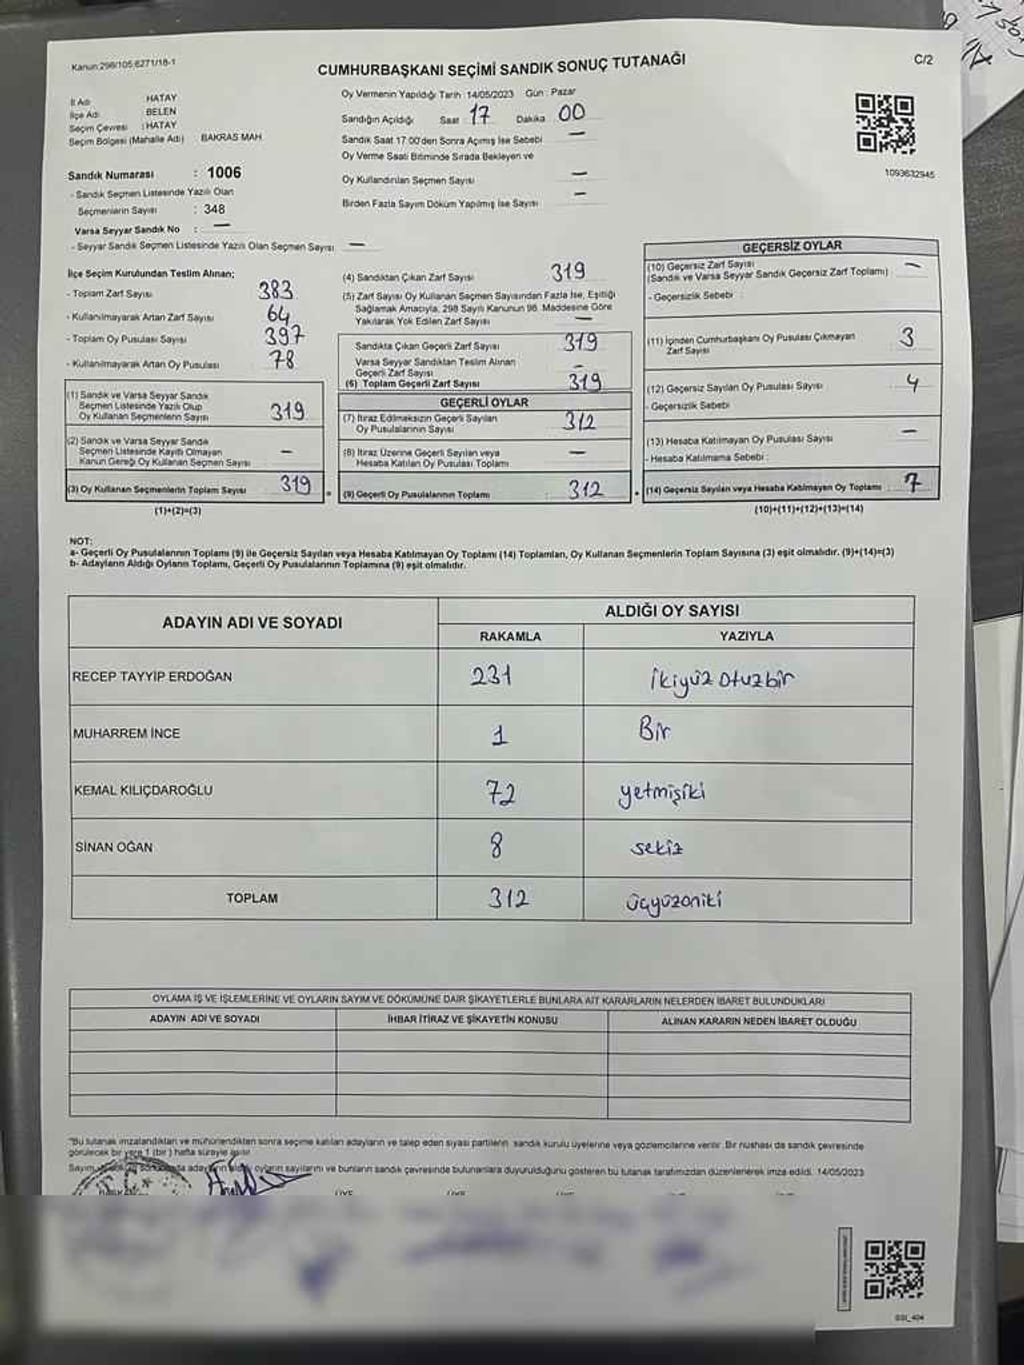 Kanun:298/105,6271/18-1
CUMHURBAŞKANI SEÇİMİ SANDIK SONUÇ TUTANAĞI
C/2
İl Adı : HATAY
İlçe Adı : BELEN
Seçim Çevresi : HATAY
Seçim Bölgesi (Mahalle Adı) : BAKRAS MAH.
Sandık Numarası : 1006
- Sandık Seçmen Listesinde Yazılı Olan
Seçmenlerin Sayısı : 348
Varsa Seyyar Sandık No : —
- Seyyar Sandık Seçmen Listesinde Yazılı Olan Seçmen Sayısı : —
Oy Vermenin Yapıldığı Tarih :14/05/2023 Gün : Pazar
Sandığın Açıldığı Saat : 17 Dakika : 00
Sandık Saat 17.00'den Sonra Açılmış İse Sebebi : —
Oy Verme Saati Bitiminde Sırada Bekleyen ve
Oy Kullandırılan Seçmen Sayısı : —
Birden Fazla Sayım Döküm Yapılmış İse Sayısı : —
1093632945
İlçe Seçim Kurulundan Teslim Alınan;
- Toplam Zarf Sayısı : 383
- Kullanılmayarak Artan Zarf Sayısı : 64
- Toplam Oy Pusulası Sayısı : 397
- Kullanılmayarak Artan Oy Pusulası : 78
(1) Sandık ve Varsa Seyyar Sandık
Seçmen Listesinde Yazılı Olup
Oy Kullanan Seçmenlerin Sayısı : 319
(2) Sandık ve Varsa Seyyar Sandık
Seçmen Listesinde Kayıtlı Olmayan
Kanun Gereği Oy Kullanan Seçmen Sayısı : —
(3) Oy Kullanan Seçmenlerin Toplam Sayısı : 319
(1)+(2)=(3)
(4) Sandıktan Çıkan Zarf Sayısı : 319
(5) Zarf Sayısı Oy Kullanan Seçmen Sayısından Fazla İse, Eşitliği
Sağlamak Amacıyla, 298 Sayılı Kanunun 98. Maddesine Göre
Yakılarak Yok Edilen Zarf Sayısı : —
Sandıkta Çıkan Geçerli Zarf Sayısı : 319
Varsa Seyyar Sandıktan Teslim Alınan
Geçerli Zarf Sayısı : —
(6) Toplam Geçerli Zarf Sayısı : 319
GEÇERLİ OYLAR
(7) İtiraz Edilmeksizin Geçerli Sayılan
Oy Pusulalarının Sayısı : 312
(8) İtiraz Üzerine Geçerli Sayılan veya
Hesaba Katılan Oy Pusulası Toplamı : —
(9) Geçerli Oy Pusulalarının Toplamı : 312
GEÇERSİZ OYLAR
(10) Geçersiz Zarf Sayısı
(Sandık ve Varsa Seyyar Sandık Geçersiz Zarf Toplamı) : —
- Geçersizlik Sebebi :
(11) İçinden Cumhurbaşkanı Oy Pusulası Çıkmayan
Zarf Sayısı : 3
(12) Geçersiz Sayılan Oy Pusulası Sayısı : 4
- Geçersizlik Sebebi :
(13) Hesaba Katılmayan Oy Pusulası Sayısı : —
- Hesaba Katılmama Sebebi :
(14) Geçersiz Sayılan veya Hesaba Katılmayan Oy Toplamı : 7
(10)+(11)+(12)+(13)=(14)
NOT:
a- Geçerli Oy Pusulalarının Toplamı (9) ile Geçersiz Sayılan veya Hesaba Katılmayan Oy Toplamı (14) Toplamları, Oy Kullanan Seçmenlerin Toplam Sayısına (3) eşit olmalıdır. (9)+(14)=(3)
b- Adayların Aldığı Oyların Toplamı, Geçerli Oy Pusulalarının Toplamına (9) eşit olmalıdır.
ADAYIN ADI VE SOYADI
ALDIĞI OY SAYISI
RAKAMLA YAZIYLA
RECEP TAYYİP ERDOĞAN 231 ikiyüz otuzbir
MUHARREM İNCE 1 Bir
KEMAL KILIÇDAROĞLU 72 yetmişiki
SİNAN OĞAN 8 sekiz
TOPLAM 312 üçyüzoniki
OYLAMA İŞ VE İŞLEMLERİNE VE OYLARIN SAYIM VE DÖKÜMÜNE DAİR ŞİKAYETLERLE BUNLARA AİT KARARLARIN NELERDEN İBARET BULUNDUKLARI
ADAYIN ADI VE SOYADI İHBAR İTİRAZ VE ŞİKAYETİN KONUSU ALINAN KARARIN NEDEN İBARET OLDUĞU
"Bu tutanak imzalandıktan ve mühürlendikten sonra seçime katılan adayların ve talep eden siyasi partilerin sandık kurulu üyelerine veya gözlemcilerine verilir. Bir nüshası da sandık çevresinde
görülecek bir yere 1 (bir) hafta süreyle asılır.
Sayım adayların aldığı oyların sayılarını ve bunların sandık çevresinde bulunanlara duyurulduğunu gösteren bu tutanak tarafımızdan düzenlenerek imza edildi. 14/05/2023